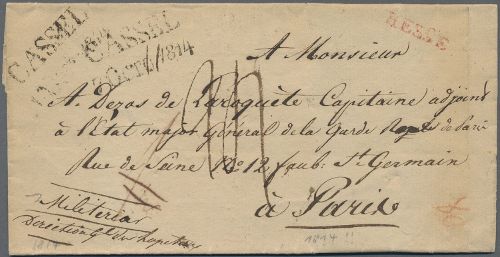 CASSEL
CASSEL
1814
HESSE
A Monsieur
A. Dezos de Laroquète Capitaine adjoint
à l'Etat major Général de la Garde de Paris
Rue de Seine No 12 faub: St Germain
à Paris
1814
1814 !!